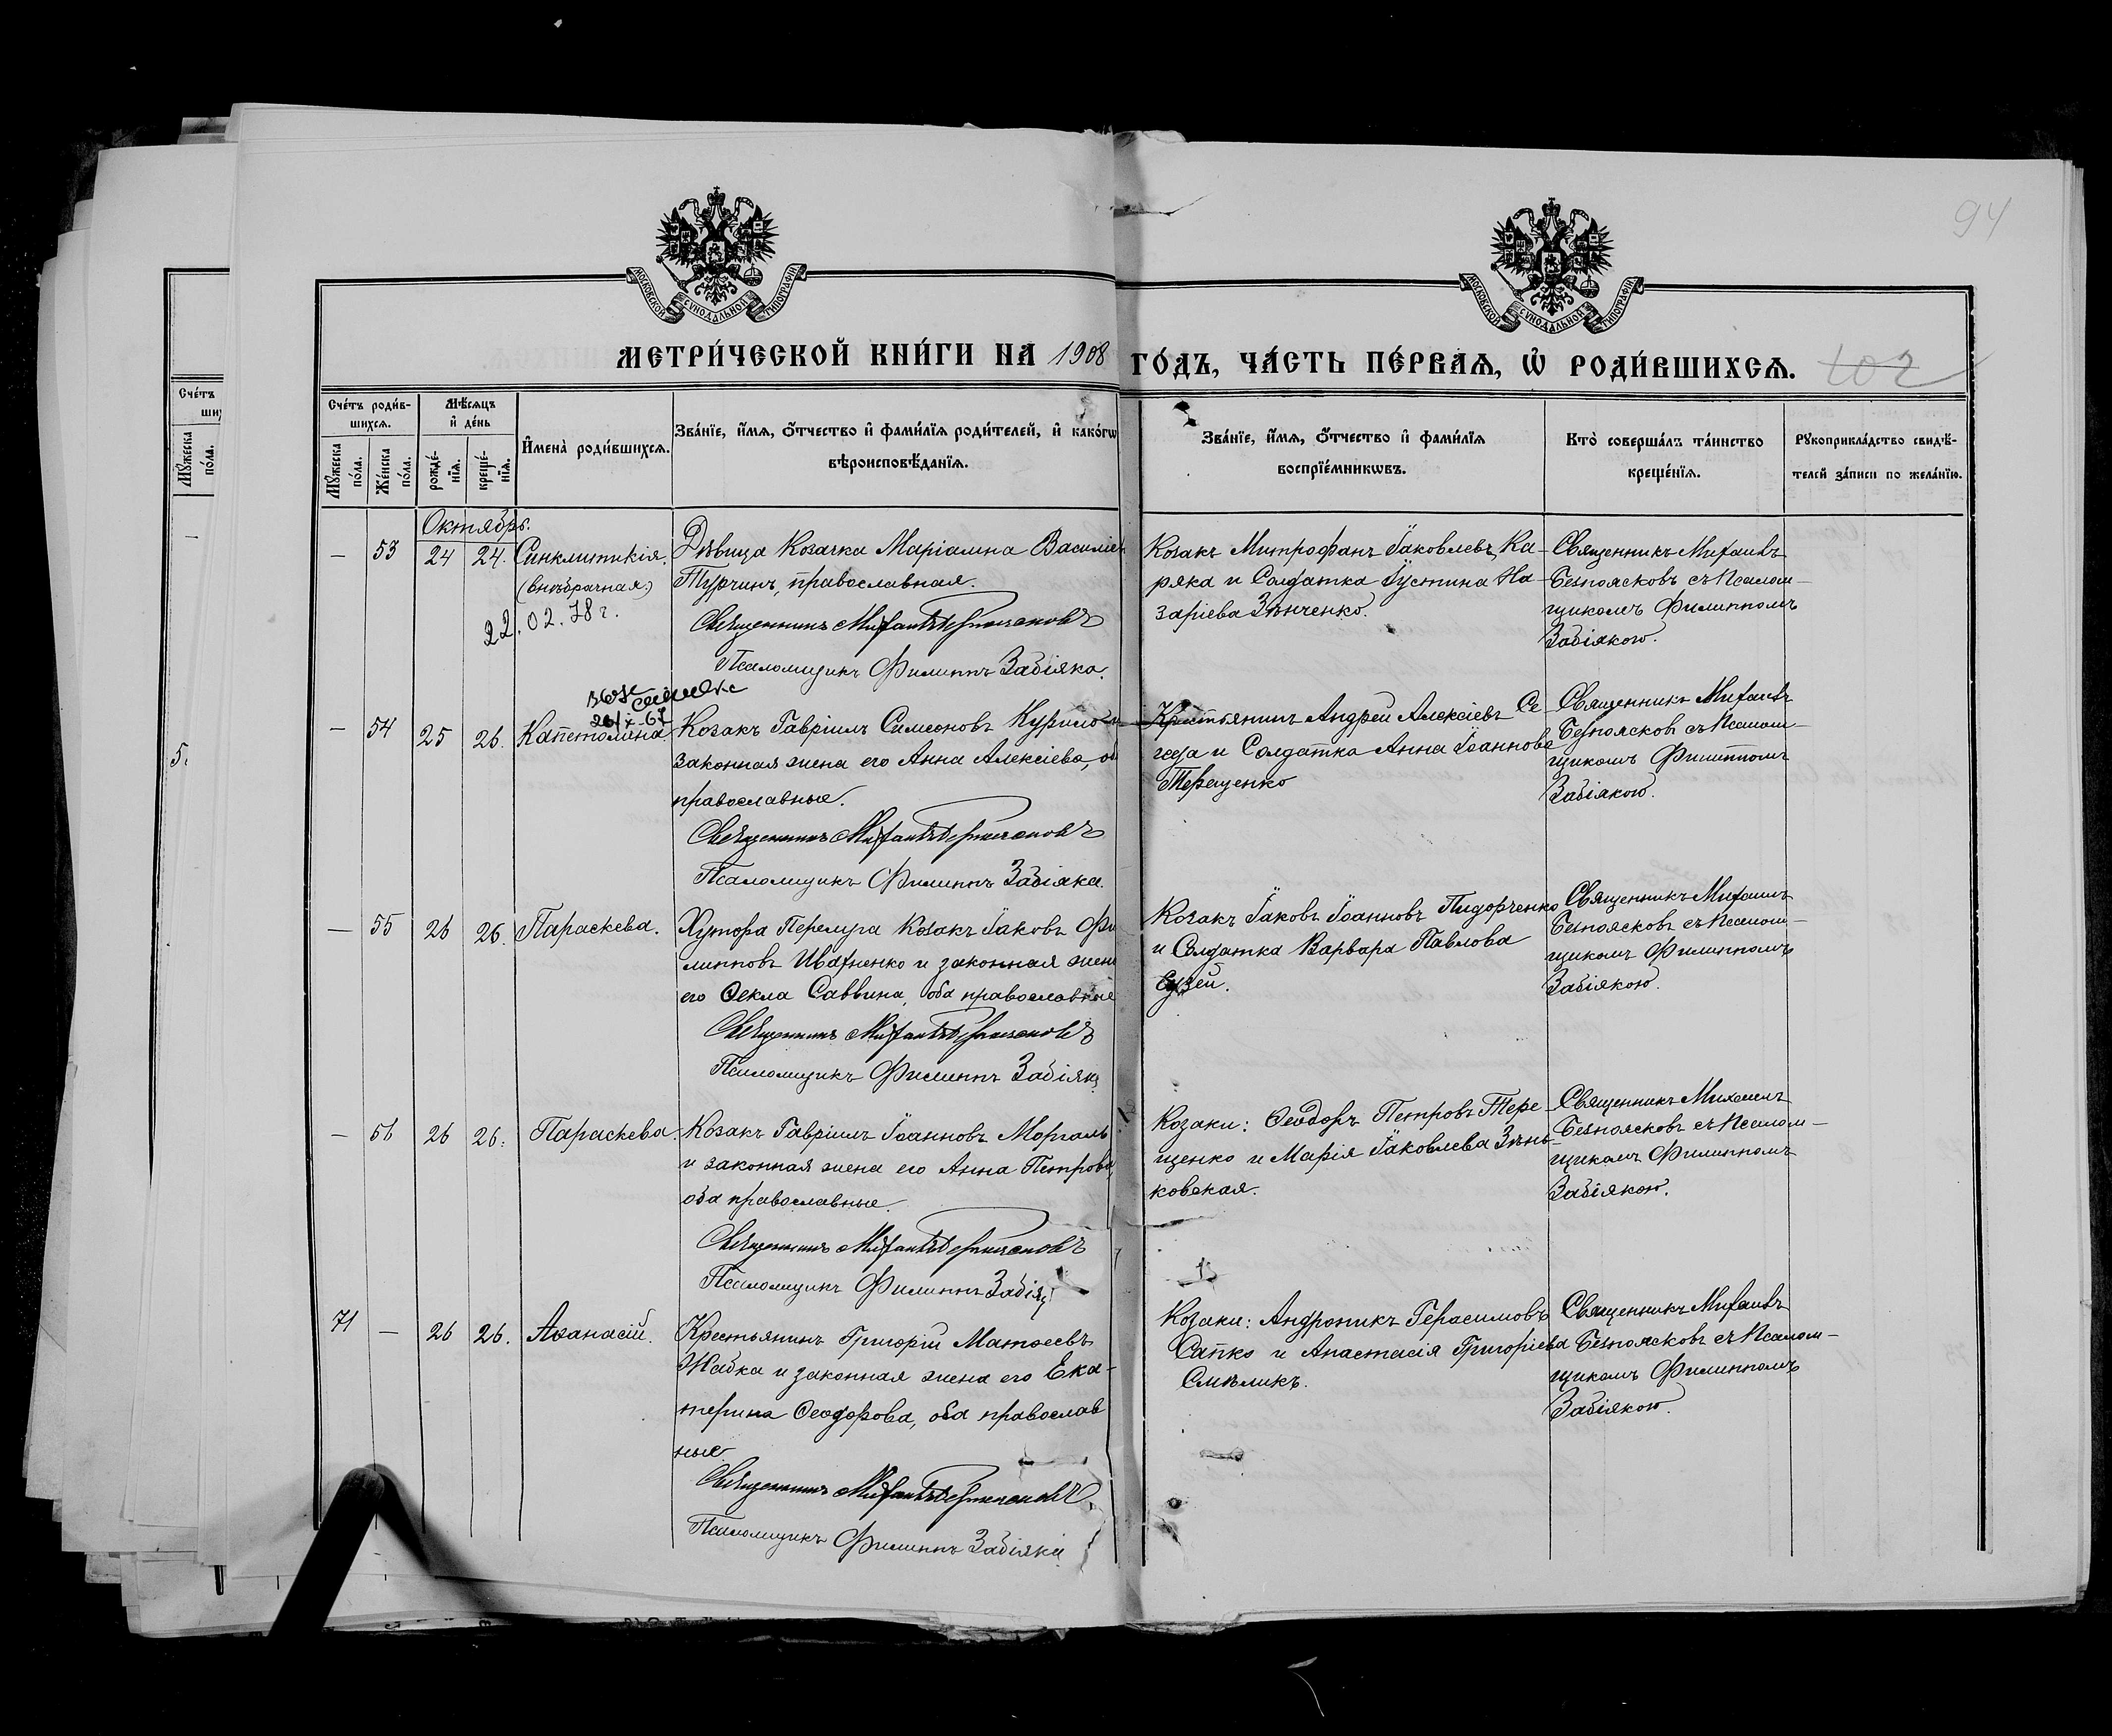 94
МОСКОВСКОЙ СУНОДАЛЬНОЙ ТИПОГРАФІИ
МОСКОВСКОЙ СУНОДАЛЬНОЙ ТИПОГРАФІИ
МЕТРИ́ЧЕСКОЙ КНИ́ГИ НА 1908 ГО́ДЪ, ЧА́СТЬ ПЕ́РВАѦ, Ѡ҆ РОДИ́ВШИХСѦ.
102
Сче́тъ роди́в-
шихсѧ.
Мѣ́сѧцъ
и҆ де́нь
Мꙋ́жеска
по́ла.
Же́нска
по́ла.
рожде́-
нїѧ.
креще́-
нїѧ.
И҆мена̀ роди́вшихсѧ.
Зва́нїе, и҆́мѧ, ѻ҆́тчество и҆ фами́лїѧ роди́телей, и҆ како́гѡ
вѣроисповѣ́данїѧ.
Зва́нїе, и҆́мѧ, ѻ҆́тчество и҆ фами́лїѧ
воспрїе́мникѡвъ.
Кто̀ соверша́лъ та́инство
креще́нїѧ.
Рꙋкоприкла́дство свидѣ́-
телей за́писи по жела́нїю.
Сче́тъ
Мꙋ́жеска
по́ла.
Октябрь.
— 53 24 24. Синклитикія.
(внѣбрачная.)
22.02.78 г.
Дѣвица Козачка Маріамна Василіе
Турчинъ, православная.
Священникъ Михаилъ Безпоясковъ
Псаломщикъ Филиппъ Забіяка.
Козакъ Митрофанъ Іаковлевъ Ка-
ряка и Солдатка Іустина На-
заріева Зѣнченко.
Священникъ Михаилъ
Безпоясковъ съ Псалом-
щикомъ Филиппомъ
Забіякою.
26/X-67
— 54 25 26. Капетолина.
Козакъ Гавріилъ Симеоновъ Курило и
законная жена его Анна Алексіева, об
православные.
Священникъ Михаилъ Безпоясковъ
Псаломщикъ Филиппъ Забіяка.
Крестьянинъ Андрей Алексіевъ Се-
реда и Солдатка Анна Іоаннова
Терещенко
Священникъ Михаилъ
Безпоясковъ съ Псалом-
щикомъ Филиппомъ
Забіякою.
— 55 26 26. Параскева.
Хутора Перелуга Козакъ Іаковъ Фи
липповъ Ивахненко и законная жен
его Ѳекла Саввина, оба православные
Священникъ Михаилъ Безпоясковъ
Псаломщикъ Филиппъ Забіяка
Козакъ Іаковъ Іоанновъ Пидорченко
и Солдатка Варвара Павлова
Священникъ Михаилъ
Безпоясковъ съ Псалом-
щикомъ Филиппомъ
Забіякою.
— 56 26 26. Параскева.
Козакъ Гавріилъ Іоанновъ Моргаль
и законная жена его Анна Петрова,
оба православные.
Священникъ Михаилъ Безпоясковъ
Псаломщикъ Филиппъ Забіяка
Козаки: Ѳеодоръ Петровъ Тере-
щенко и Марія Іаковлева Зѣнь-
ковская.
Священникъ Михаилъ
Безпоясковъ съ Псалом-
щикомъ Филиппомъ
Забіякою.
71 — 26 26. Аѳанасій.
Крестьянинъ Григорій Матѳеевъ
Жабка и законная жена его Ека-
терина Ѳеодорова, оба православ
ные
Священникъ Михаилъ Безпоясковъ
Псаломщикъ Филиппъ Забіяка
Козаки: Андроникъ Герасимовъ
Сапко и Анастасія Григоріева
Смѣликъ.
Священникъ Михаилъ
Безпоясковъ съ Псалом-
щикомъ Филиппомъ
Забіякою.